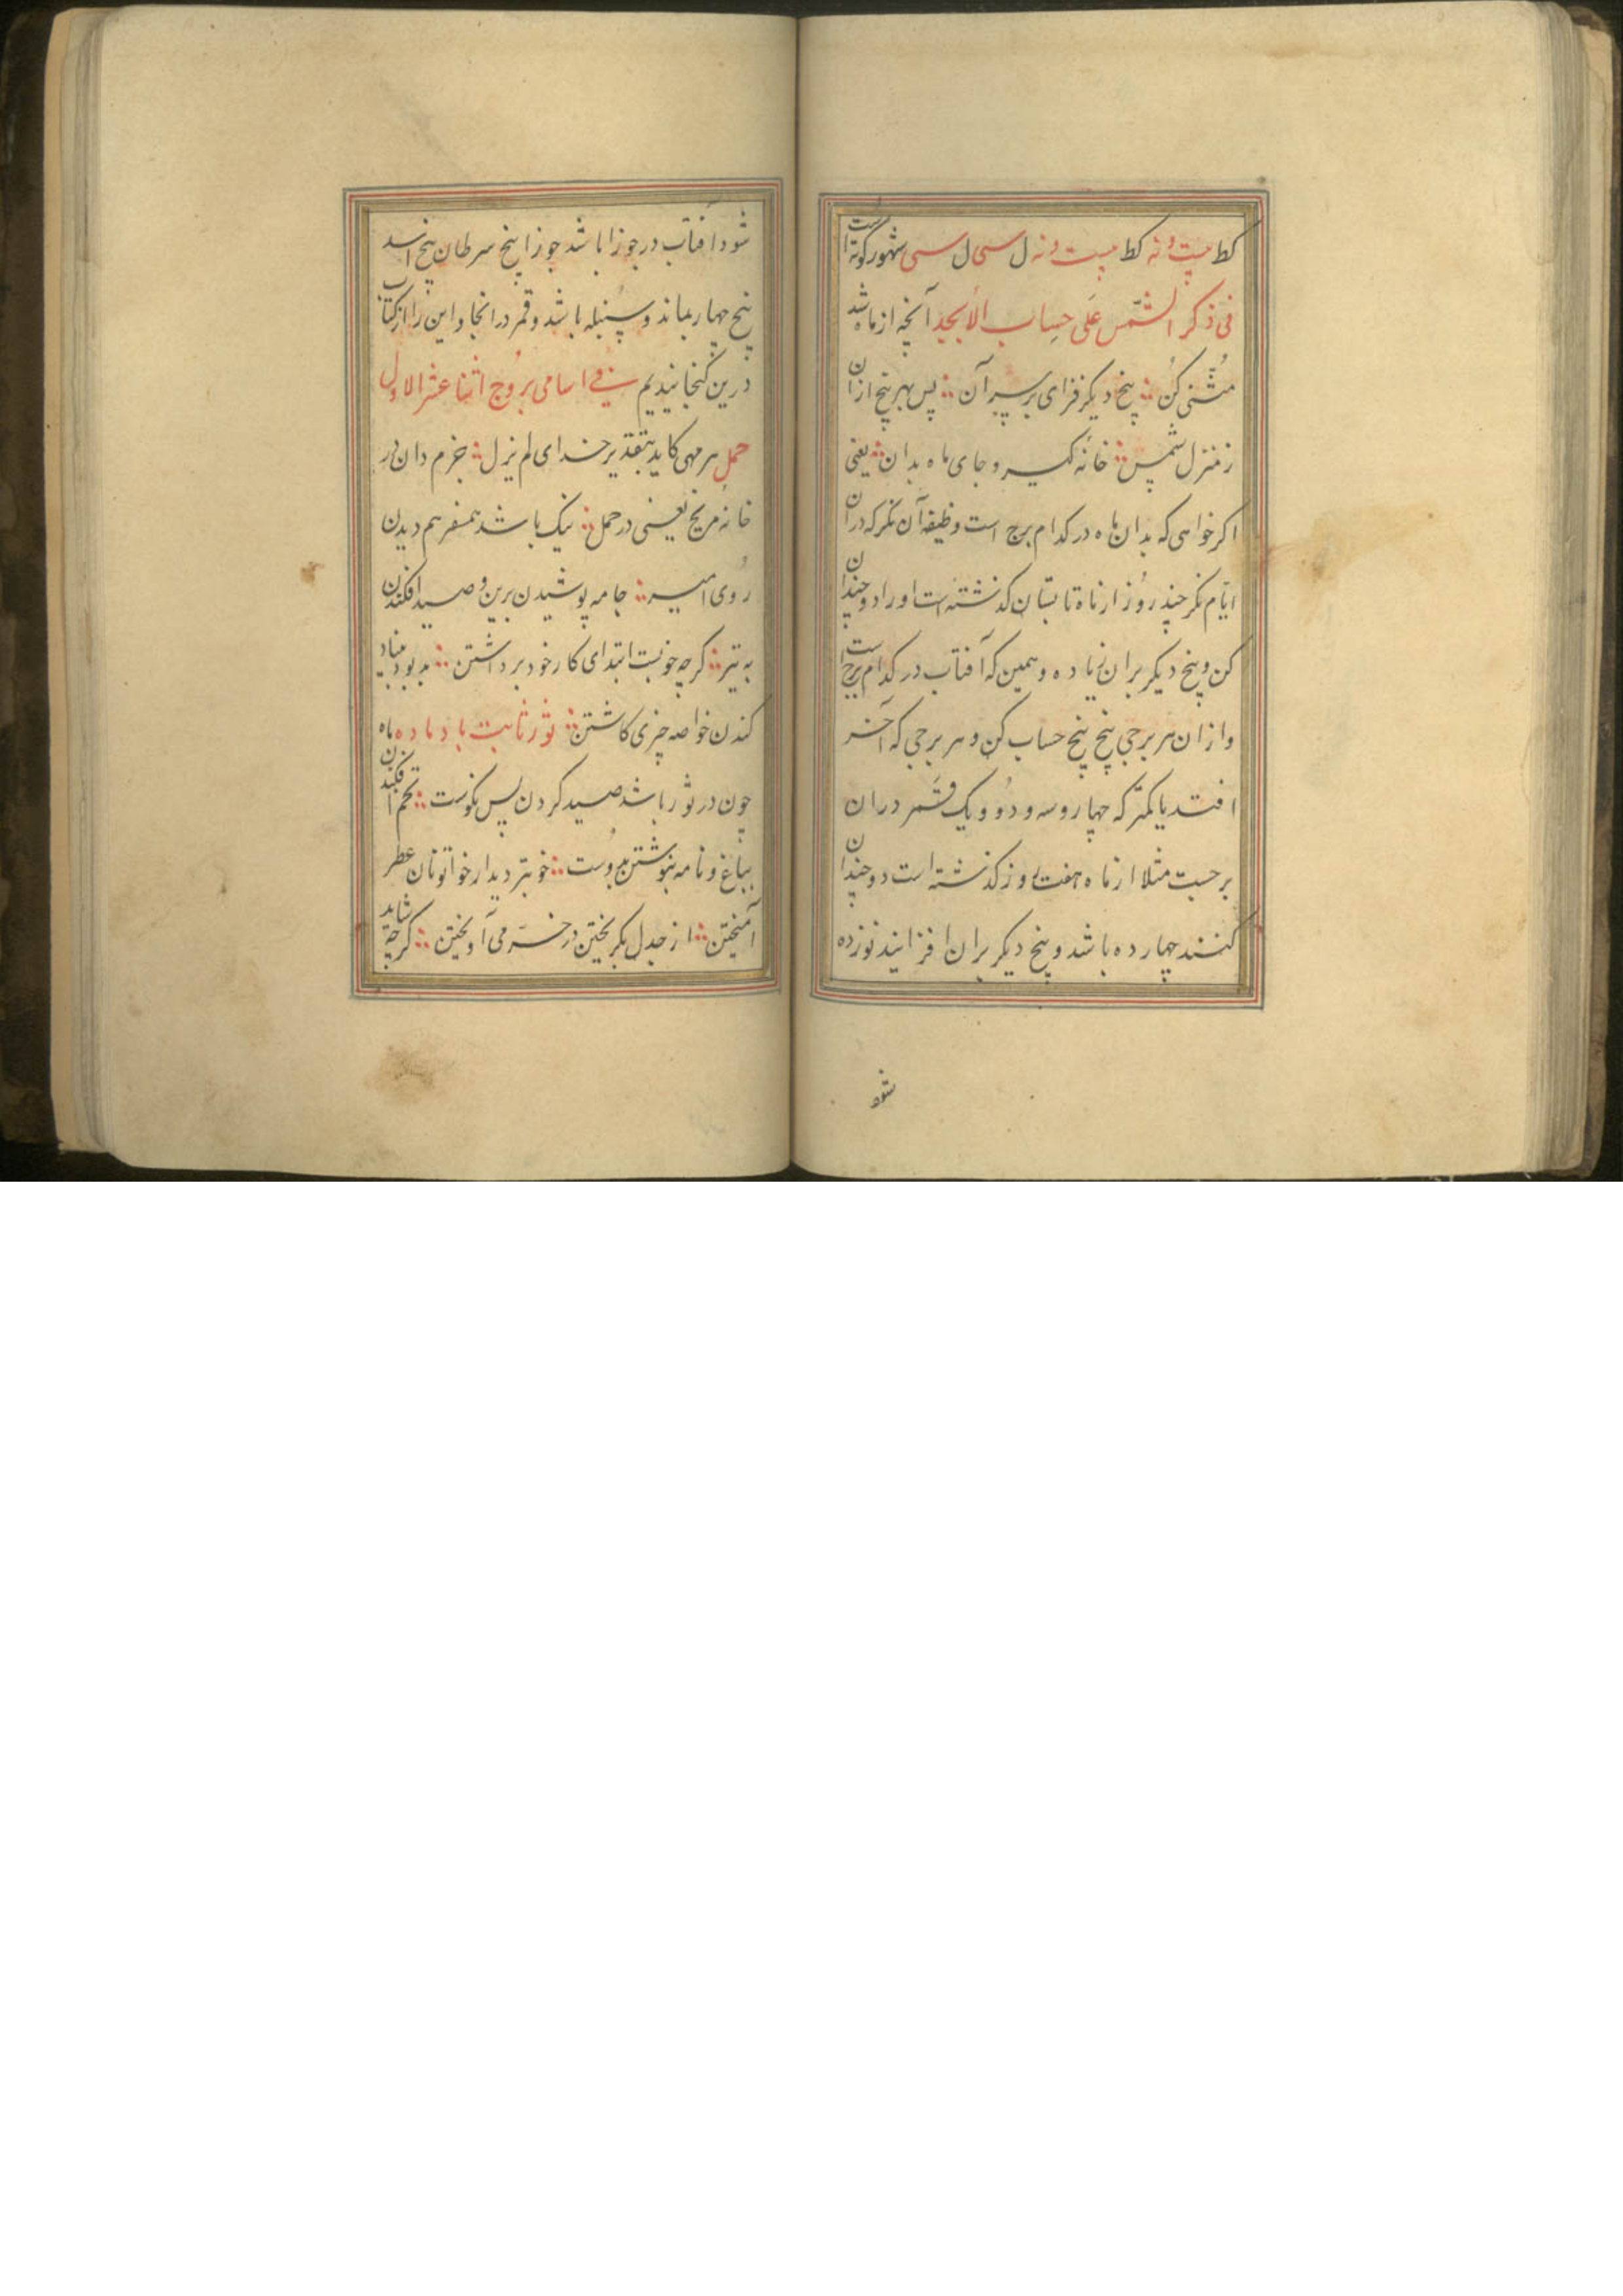 کط بیست و نه کط بیست و نه ل سی ل سی شهور کوته است
فی ذکر الشمس علی حساب الابجد آنچه از ماه شد
مثنی کن پنج دیکر فزای بر سر آن پس بهر پنج ازان
ز منزل شمس خانه کیر و جای ماه بدان یعنی
اکر خواهی که بدان ماه در کدام برج است وظیفه آن نکر که دران
ایام نکر چند روز از ماه تابستان کذشته است او را دو چندان
کن و پنج دیکر بران زیاده و همین که آفتاب در کدام برج است
و ازان هر برجی پنج پنج حساب کن و هر برجی که آخر
افتد یا کمتر که چهار و سه و دو و یک قمر دران
برجست مثلا از ماه هفت روز کذشته است دو چندان
کنند چهارده باشد و پنج دیکر بران افزایند نوزده
شود
شود آفتاب در جوزا باشد جوزا پنج سرطان پنج اسد
پنج چهار بماند و سنبله باشد و قمر در انجا و این را از کتاب
درین کنجانیدیم فی اسامی بروج اثنا عشر الاول
حمل هر مهی کاید بتقدیر خدای لم یزل خرم دان در
خانه مریخ یعنی در حمل نیک باشد هم سفر هم دیدن
روی امیر جامه پوشیدن برین و صید افکندن
به تیر کرچه خوبست ابتدای کار خود برداشتن بد بود بنیاد
کندن خواصه چیزی کاشتن ثور ثابت باد ماده ماه
چون در ثور باشد صید کردن بس نکوست تخم افکندن
بباغ و نامه بنوشتن بدوست خوبتر دیدار خواتونان عطر
آمیختن از جدل بکریختن در خرمی آویختن کرچه شاید